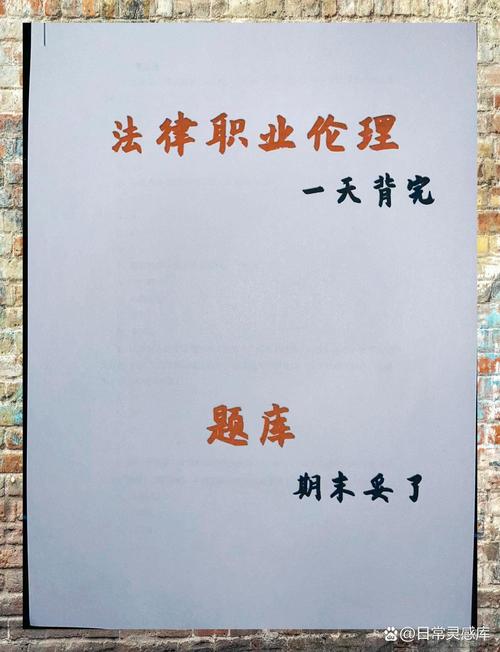 法律职业伦理
一天背完
题库
期末妥了
@日常灵感库